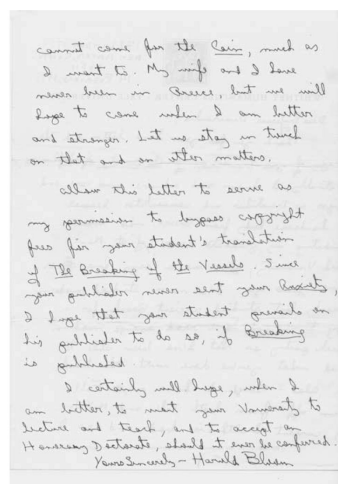 cannot come for the Cain, much as
I want to. My wife and I have
never been in Greece, but we will
hope to come when I am better
and stronger. Let us stay in touch
on that and on other matters.
Allow this letter to serve as
my permission to bypass copyright
fees for your student's translation
of The Breaking of the Vessels. Since
your publisher never sent your Anxiety,
I hope that your student prevails on
his publisher to do so, if Breaking
is published.
I certainly will hope, when I
am better, to visit your University to
lecture and teach, and to accept an
Honorary Doctorate, should it ever be conferred.
Yours Sincerely – Harold Bloom